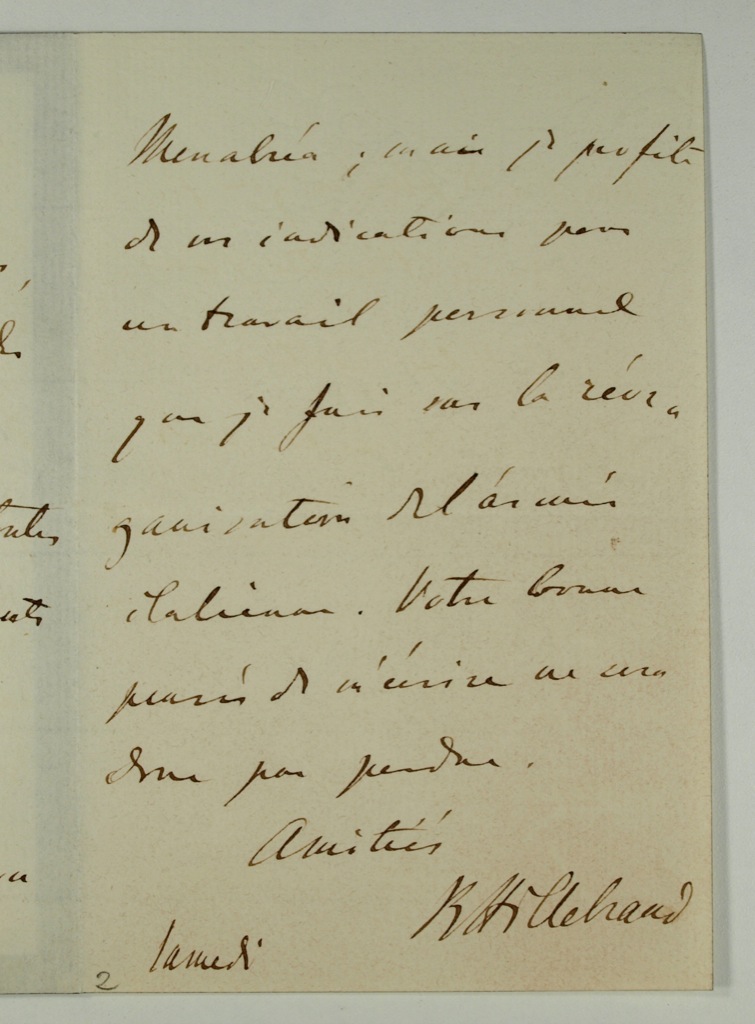 Menabréa ; mais je profite
de vos indications pour
un travail personnel
que je fais sur la réor-
ganisation de l'armée
italienne. Votre bonne
pensée de m'écrire ne sera
donc pas perdue.
Amitiés
KHillebrand
Samedi
2